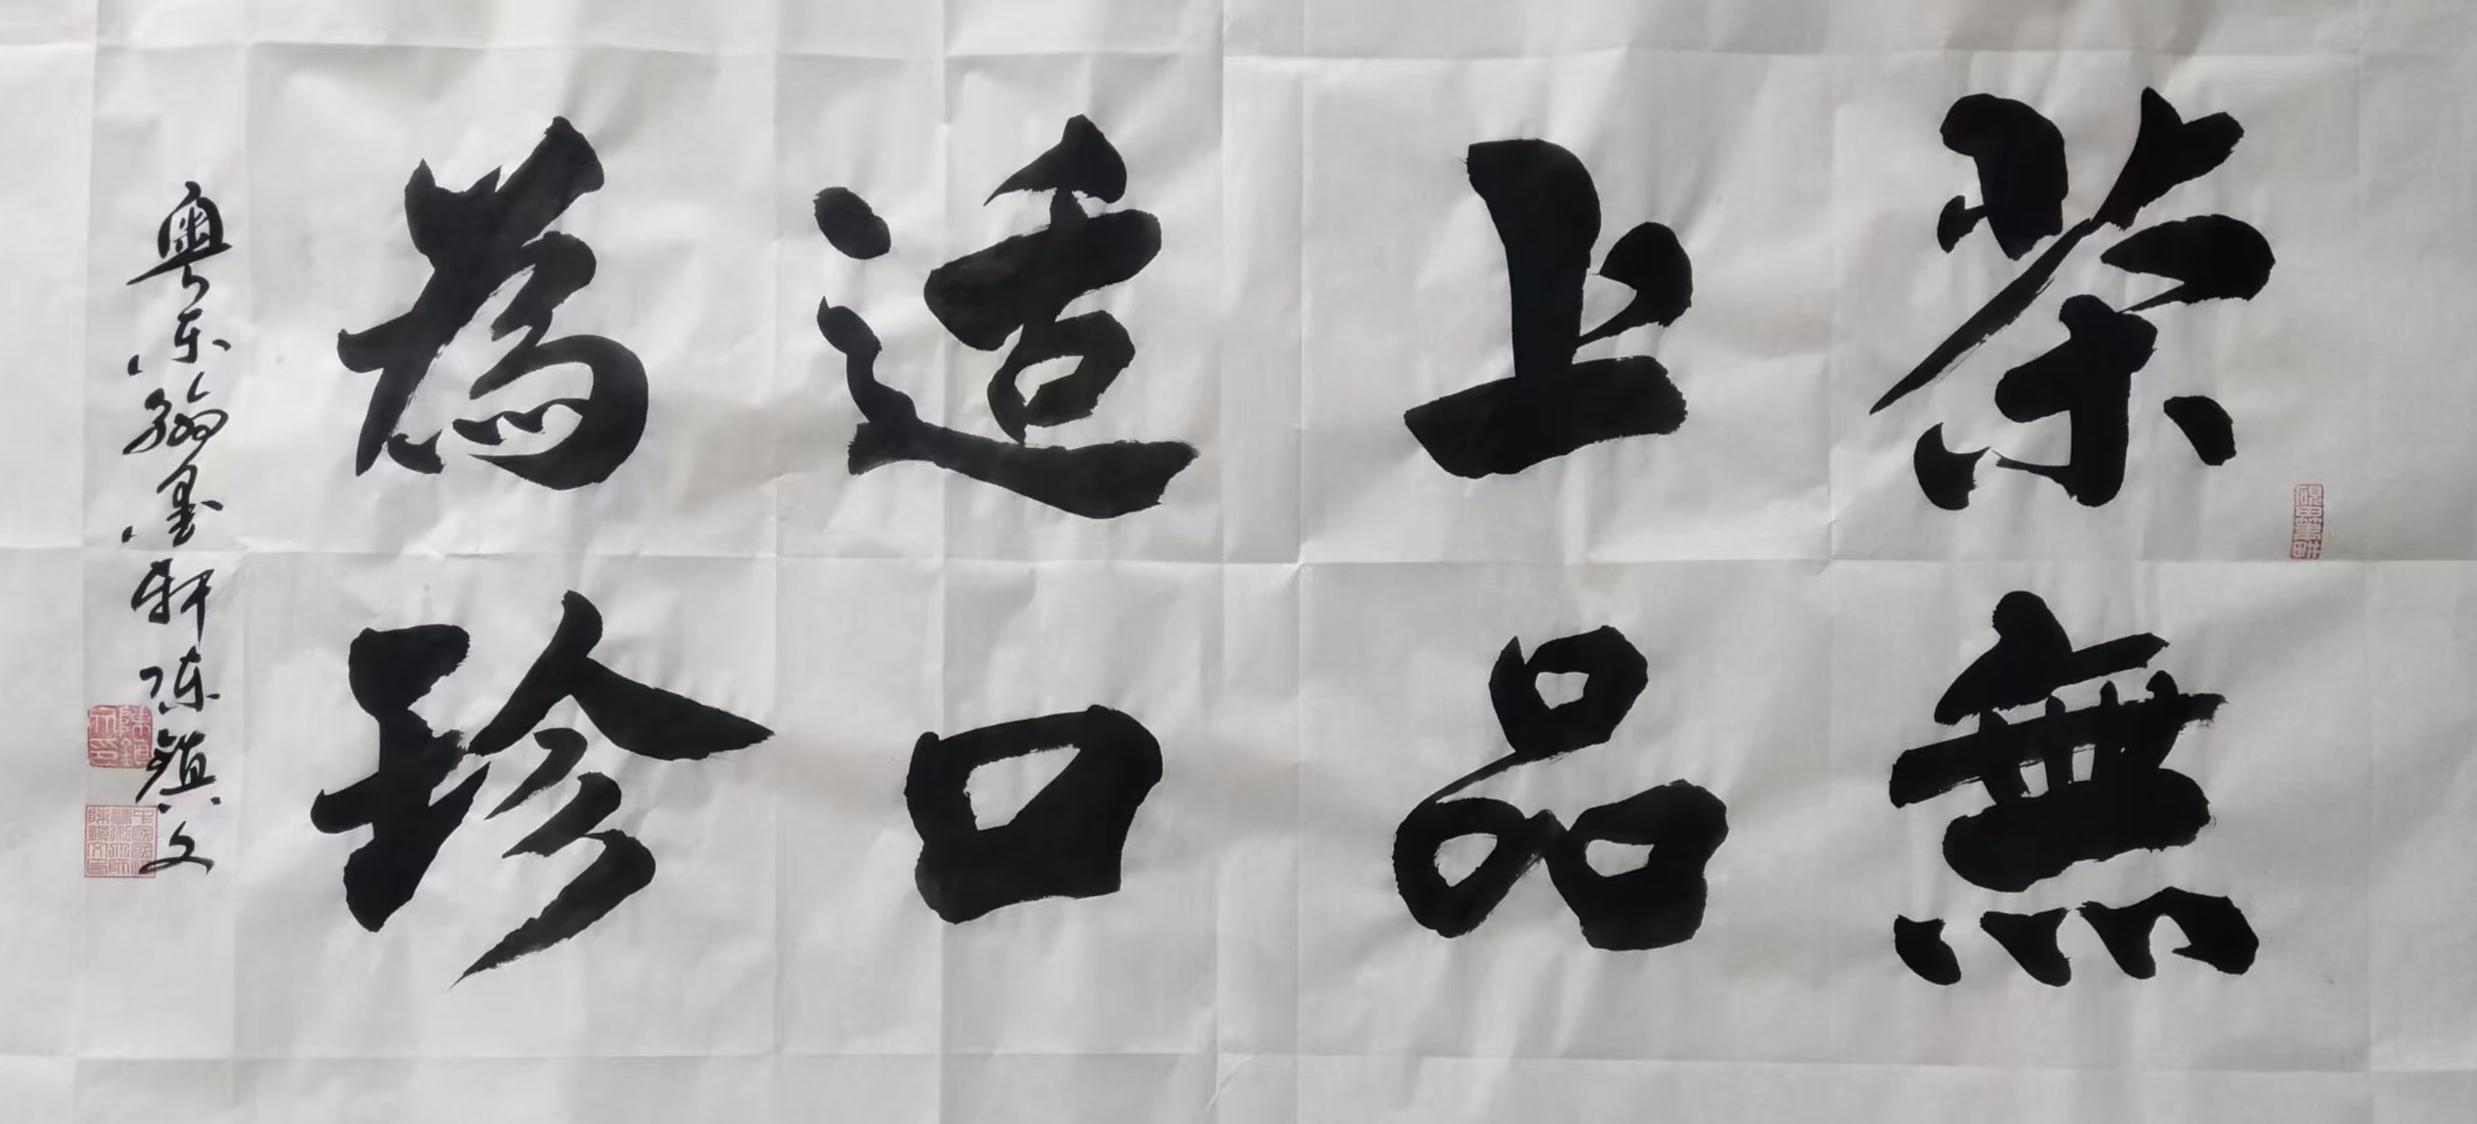 茶無
上品
适口
為珍
粤东翰墨轩陈镇文